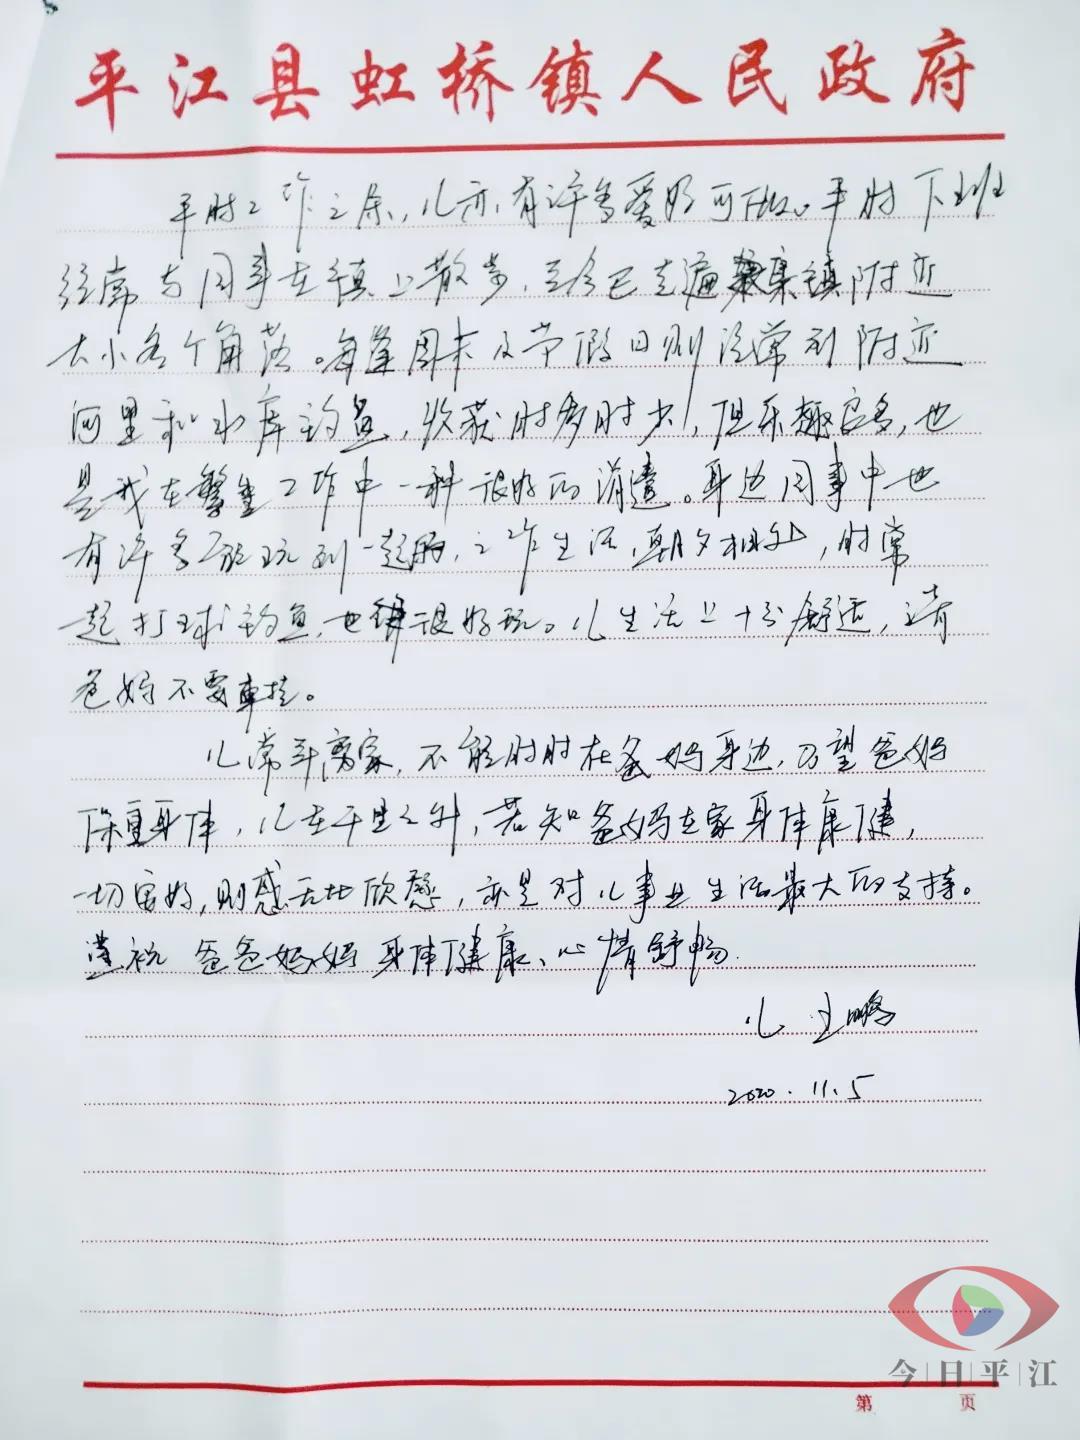 平江县虹桥镇人民政府
平时工作之余，儿亦有许多爱好可做。平时下班
经常与同事在镇上散步，至今已走遍集镇附近
大小各个角落。每逢周末及节假日则经常到附近
河里和水库钓鱼，收获时多时少，但乐趣良多，也
是我在繁重工作中一种很好的消遣。身边同事中也
有许多能玩到一起的，工作生活，朝夕相处，时常
一起打球钓鱼，也很好玩。儿生活上十分舒适，请
爸妈不要牵挂。
儿常年离家，不能时时在爸妈身边，乃望爸妈
保重身体，儿在千里之外，若知爸妈在家身体康健，
一切安好，则感无比欣慰，亦是对儿事业生活最大的支持。
谨祝 爸爸妈妈身体健康、心情舒畅.
儿
2020.11.5
今日平江
第 页